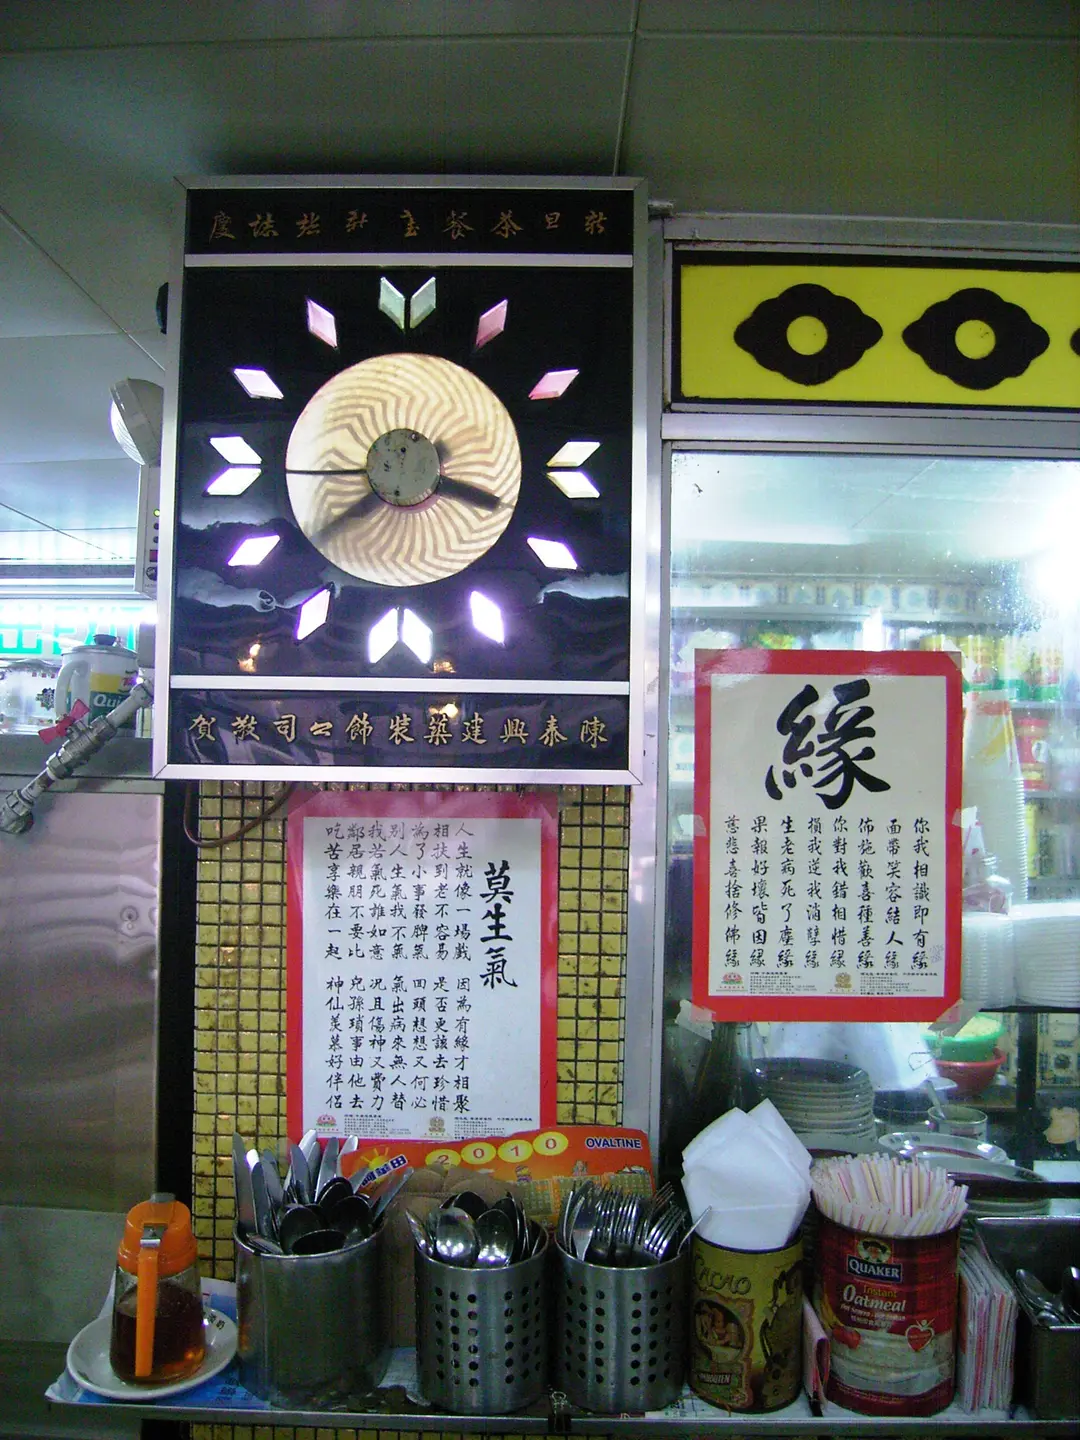 新旦茶餐室新張誌慶
陳泰興建築裝飾公司敬賀
莫生氣
人生就像一場戲 因為有緣才相聚
相扶到老不容易 是否更該去珍惜
為了小事發脾氣 回頭想想又何必
別人生氣我不氣 氣出病來無人替
我若氣死誰如意 況且傷神又費力
鄰居親朋不要比 兒孫瑣事由他去
吃苦享樂在一起 神仙羨慕好伴侶
緣
你我相識即有緣
面帶笑容結人緣
佈施歡喜種善緣
你對我錯相惜緣
損我逆我消孽緣
生老病死了塵緣
果報好壞皆因緣
慈悲喜捨修佛緣
阿華田
2010
OVALTINE
QUAKER
Instant
Oatmeal